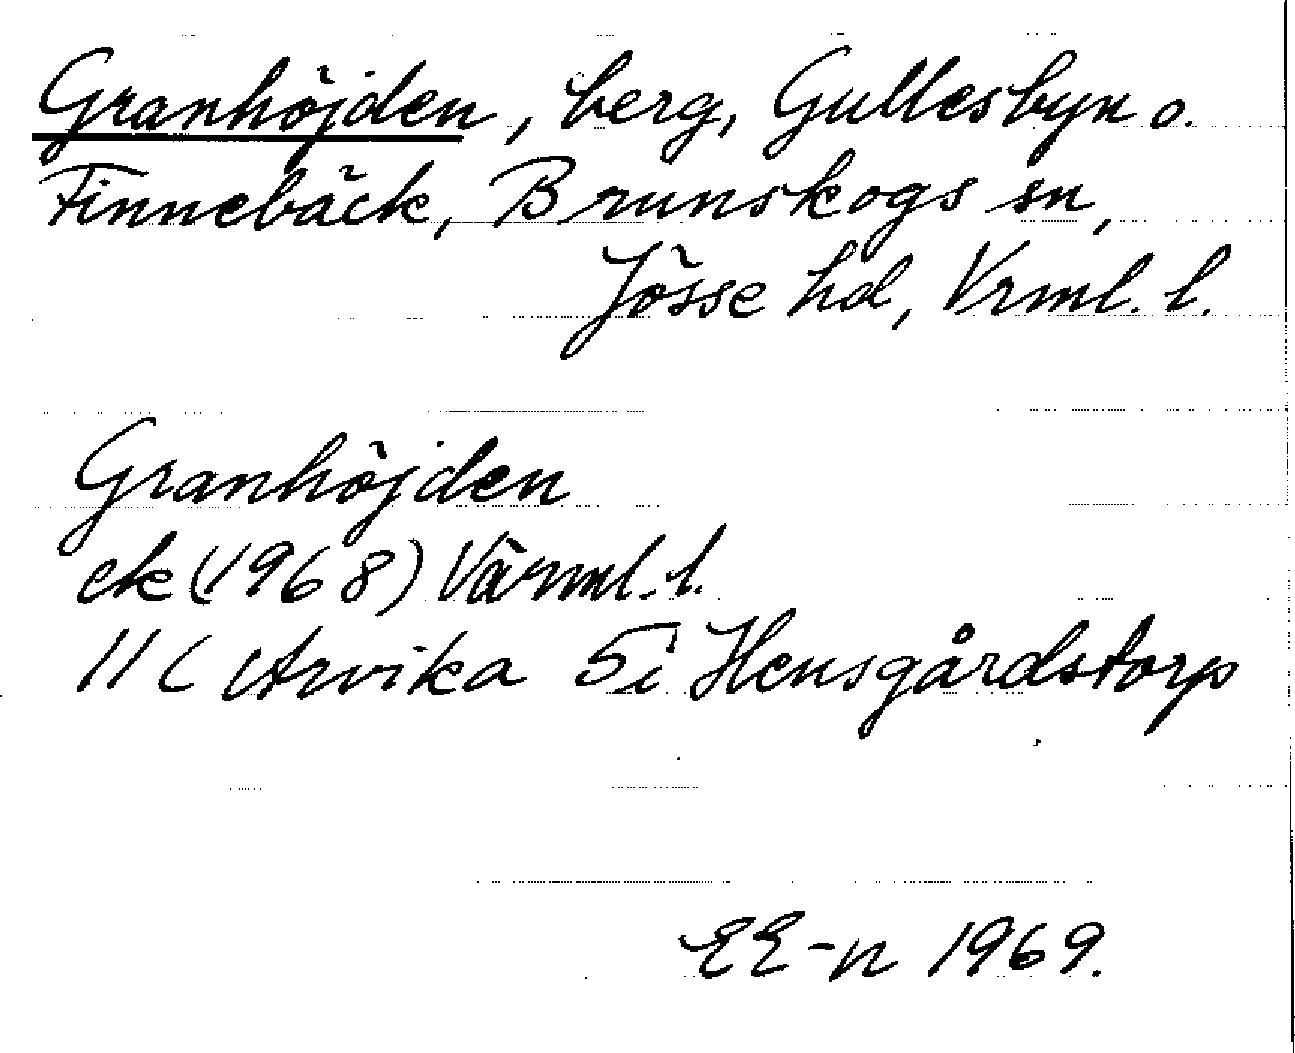 Granhöjden, berg, Gullesbyn o.
Finnebäck, Brunskogs sn,
Jösse hd, Vrml. l.
Granhöjden
ek (1968) Värml. l.
11 C Arvika 5 i Hensgårdstorp
EE-n 1969.